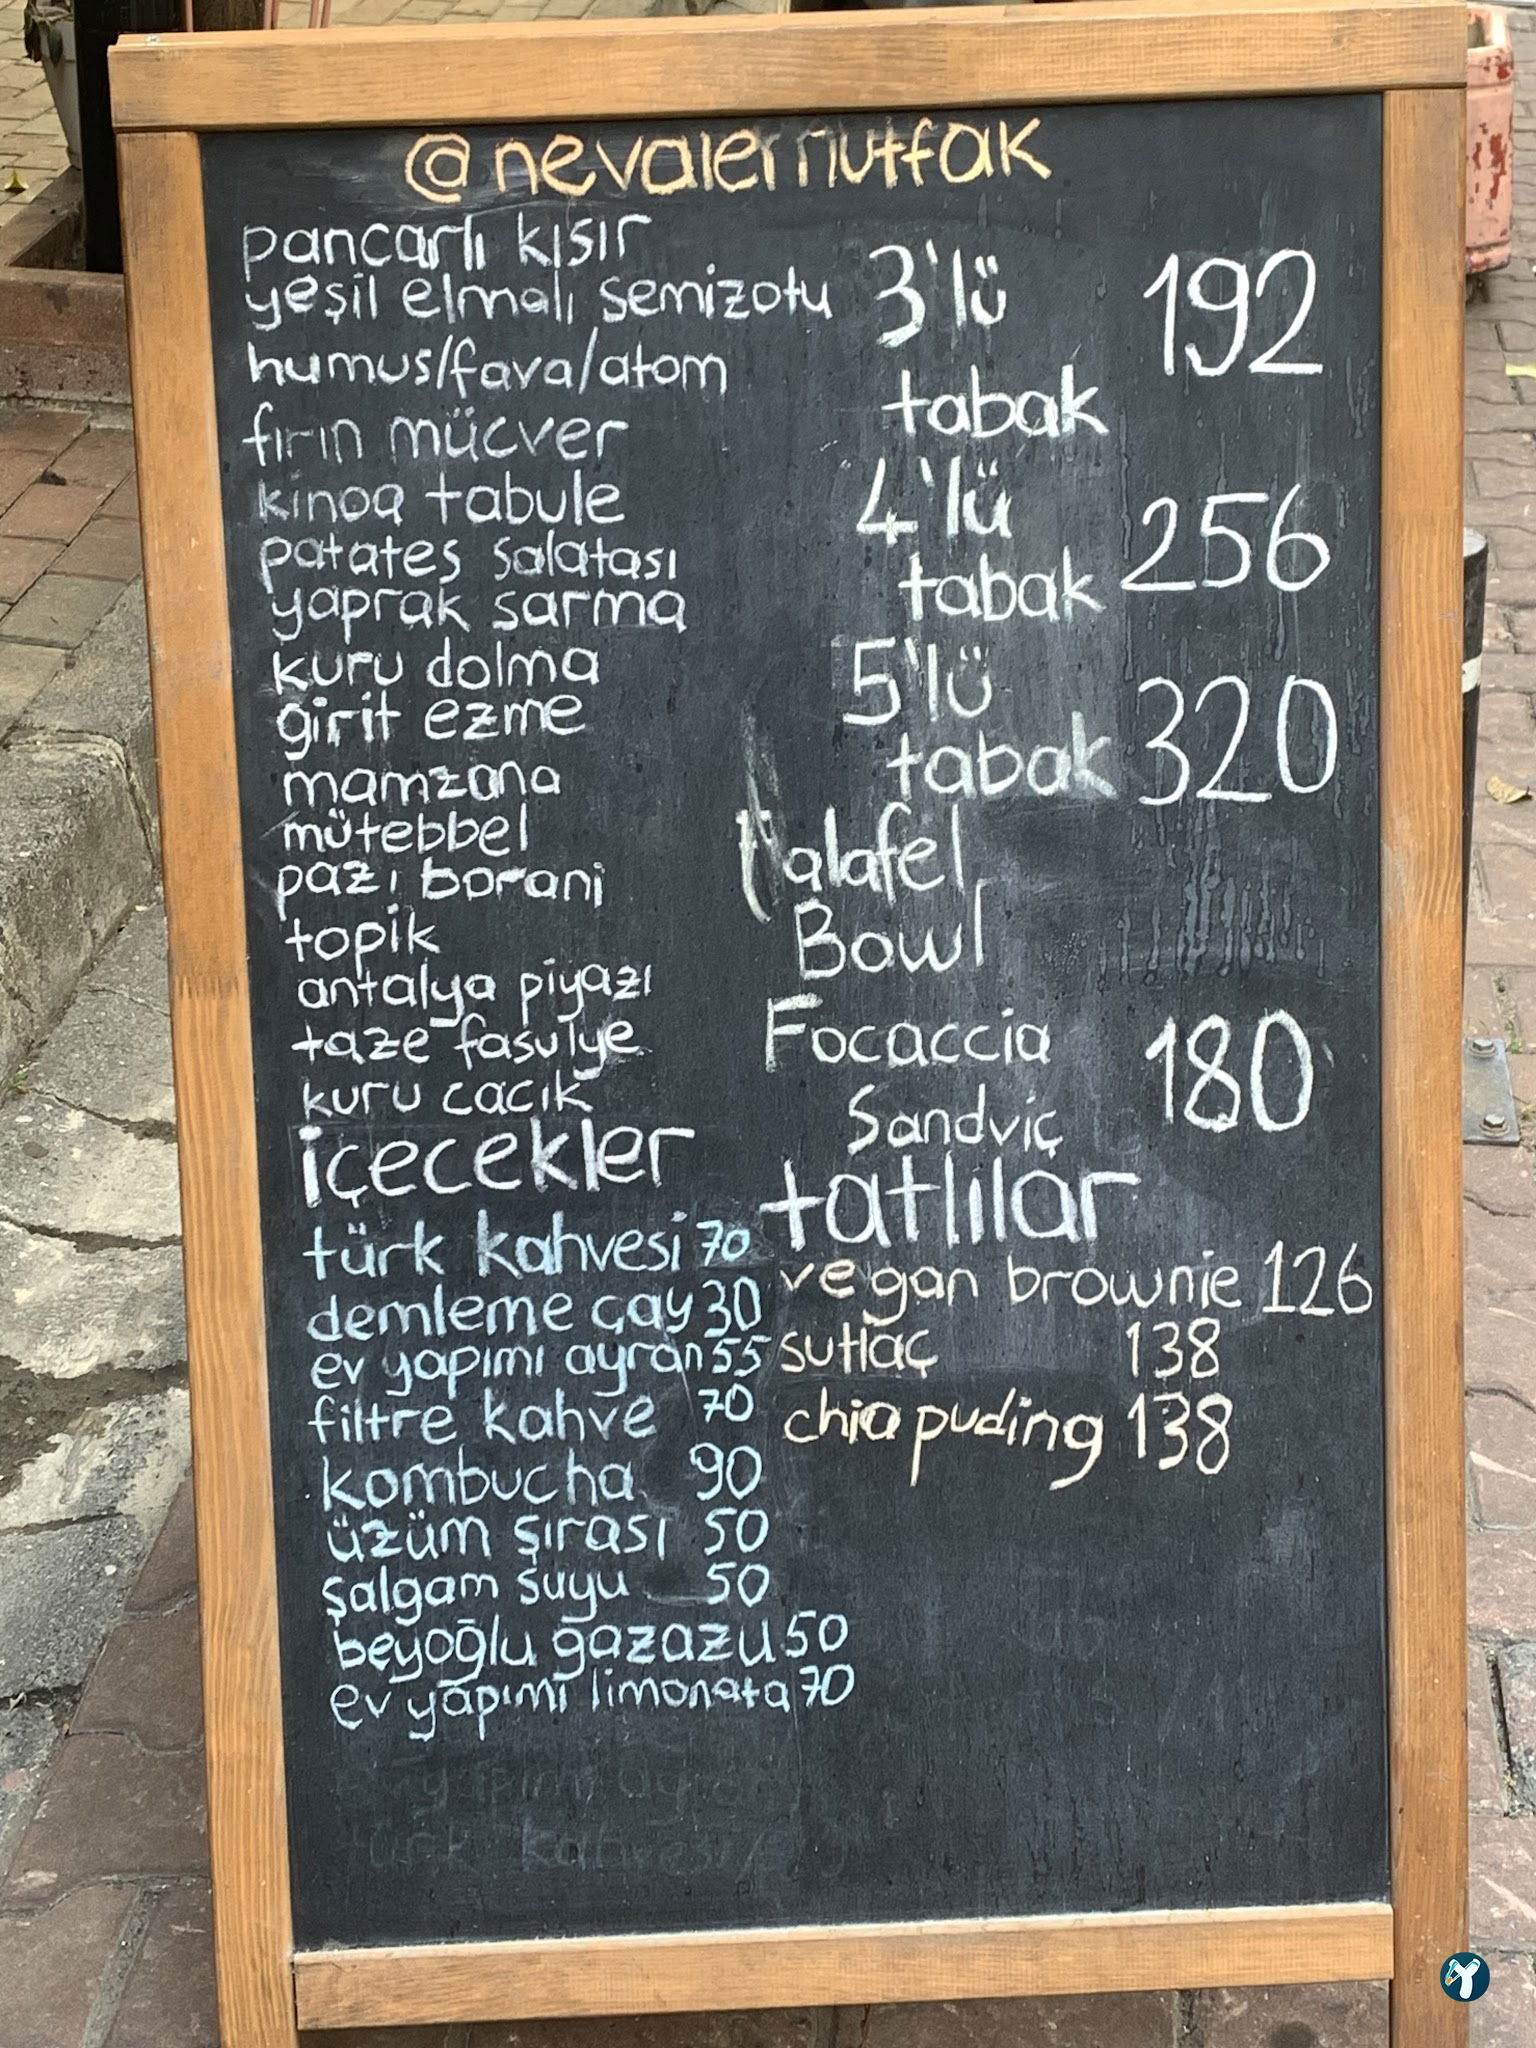 @nevalermutfak
pancarlı kısır
yeşil elmalı semizotu
humus/fava/atom
fırın mücver
kinoa tabule
patates salatası
yaprak sarma
kuru dolma
girit ezme
mamzana
mütebbel
pazı borani
topik
antalya piyazı
taze fasulye
kuru cacık
3'lü
tabak 192
4'lü
tabak 256
5'lü
tabak 320
Falafel
Bowl
Focaccia 180
Sandviç
içecekler
türk kahvesi 70
demleme çay 30
ev yapımı ayran 55
filtre kahve 70
kombucha 90
üzüm şırası 50
şalgam suyu 50
beyoğlu gazazu 50
ev yapımı limonata 70
tatlılar
vegan brownie 126
sutlaç 138
chia puding 138